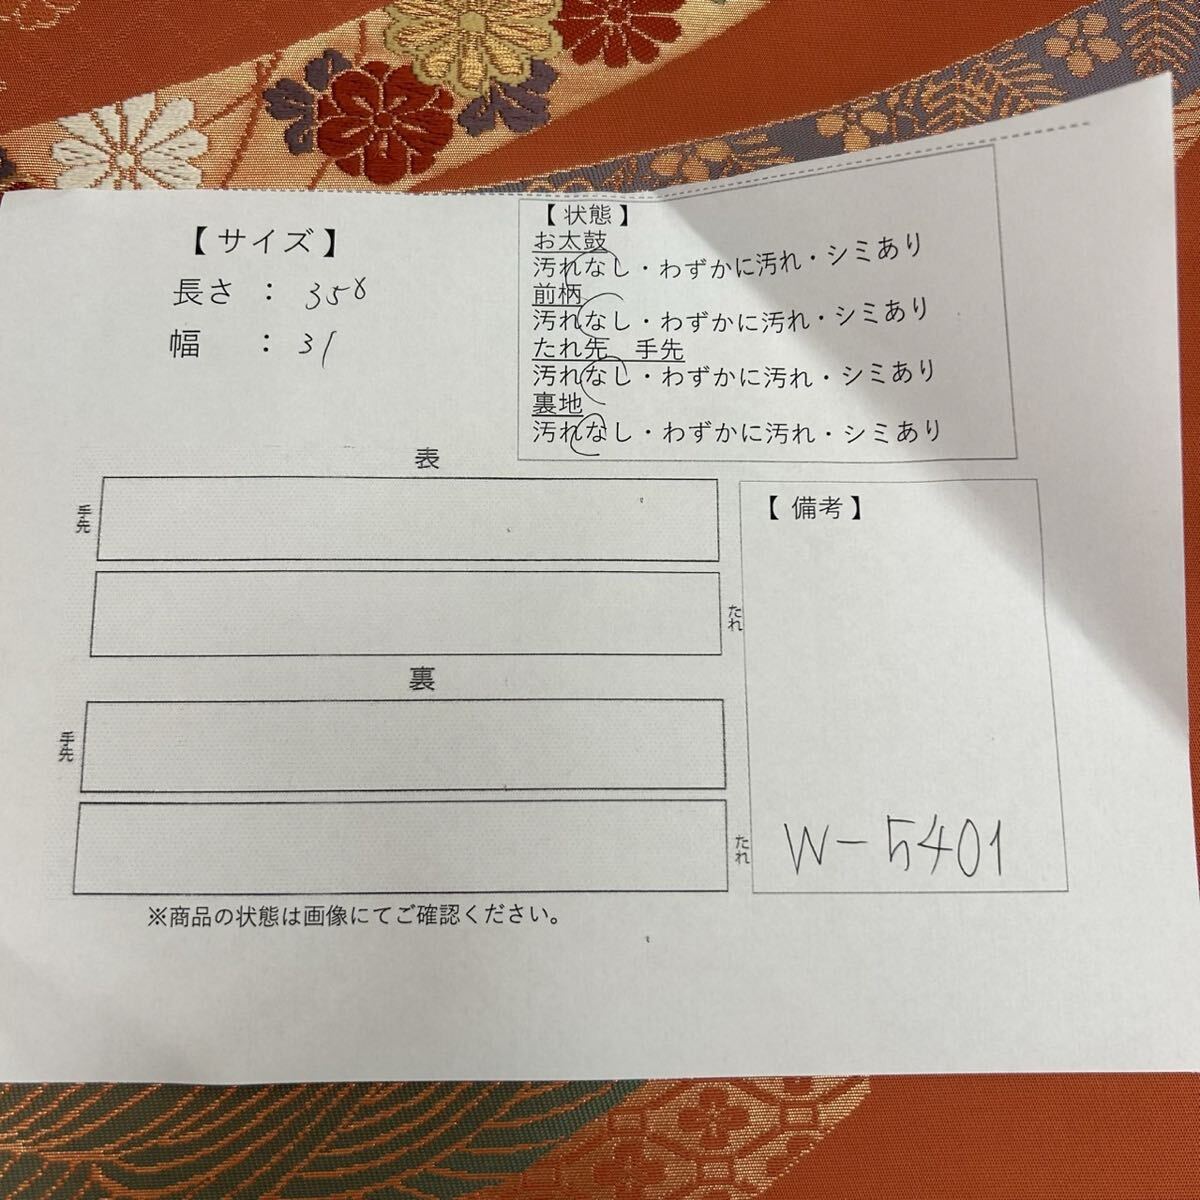 【 サイズ 】
長さ : 358
幅 : 31
【 状態 】
お太鼓
汚れなし・わずかに汚れ・シミあり
前柄
汚れなし・わずかに汚れ・シミあり
たれ先 手先
汚れなし・わずかに汚れ・シミあり
裏地
汚れなし・わずかに汚れ・シミあり
表
手先
たれ
裏
手先
たれ
【 備考 】
W-5401
※商品の状態は画像にてご確認ください。